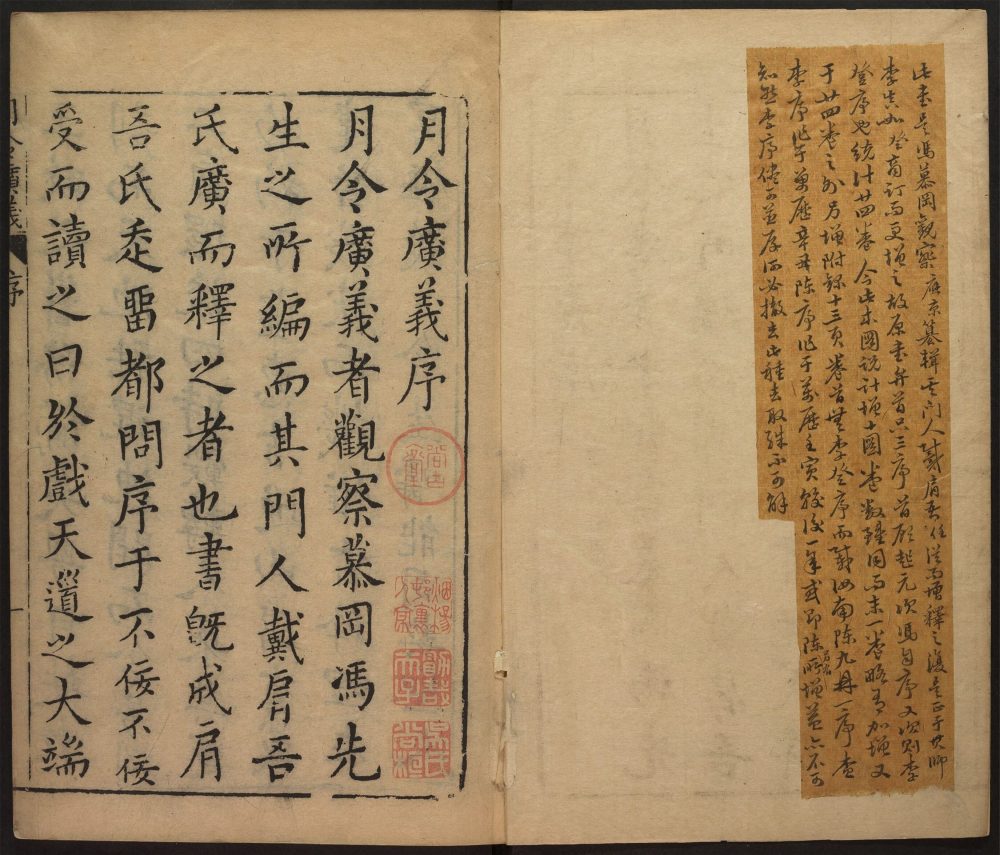 此書是馮慕岡觀察應京纂輯其門人戴肩吾任從而增釋之復是正于其師
李士如登商訂而更增之故原書弁首只三序首顧起元次馮自序又次則李
登序也統計廿四卷今此本圖說計增十圖卷數雖同而末一卷略有加增又
于廿四卷之外另增附錄十三頁卷首無李登序而載汝南陳九一序查
李序作于萬歷辛丑陳序作于萬歷壬寅後一年或即陳所增益亦不可
知然李序儘可並存何必撤去此種去取殊不可解
月令廣義序
月令廣義者觀察慕岡馮先
生之所編而其門人戴肩吾
氏廣而釋之者也書旣成肩
吾氏走畱都問序于不佞不佞
受而讀之曰於戲天道之大端
月令廣義 序
一